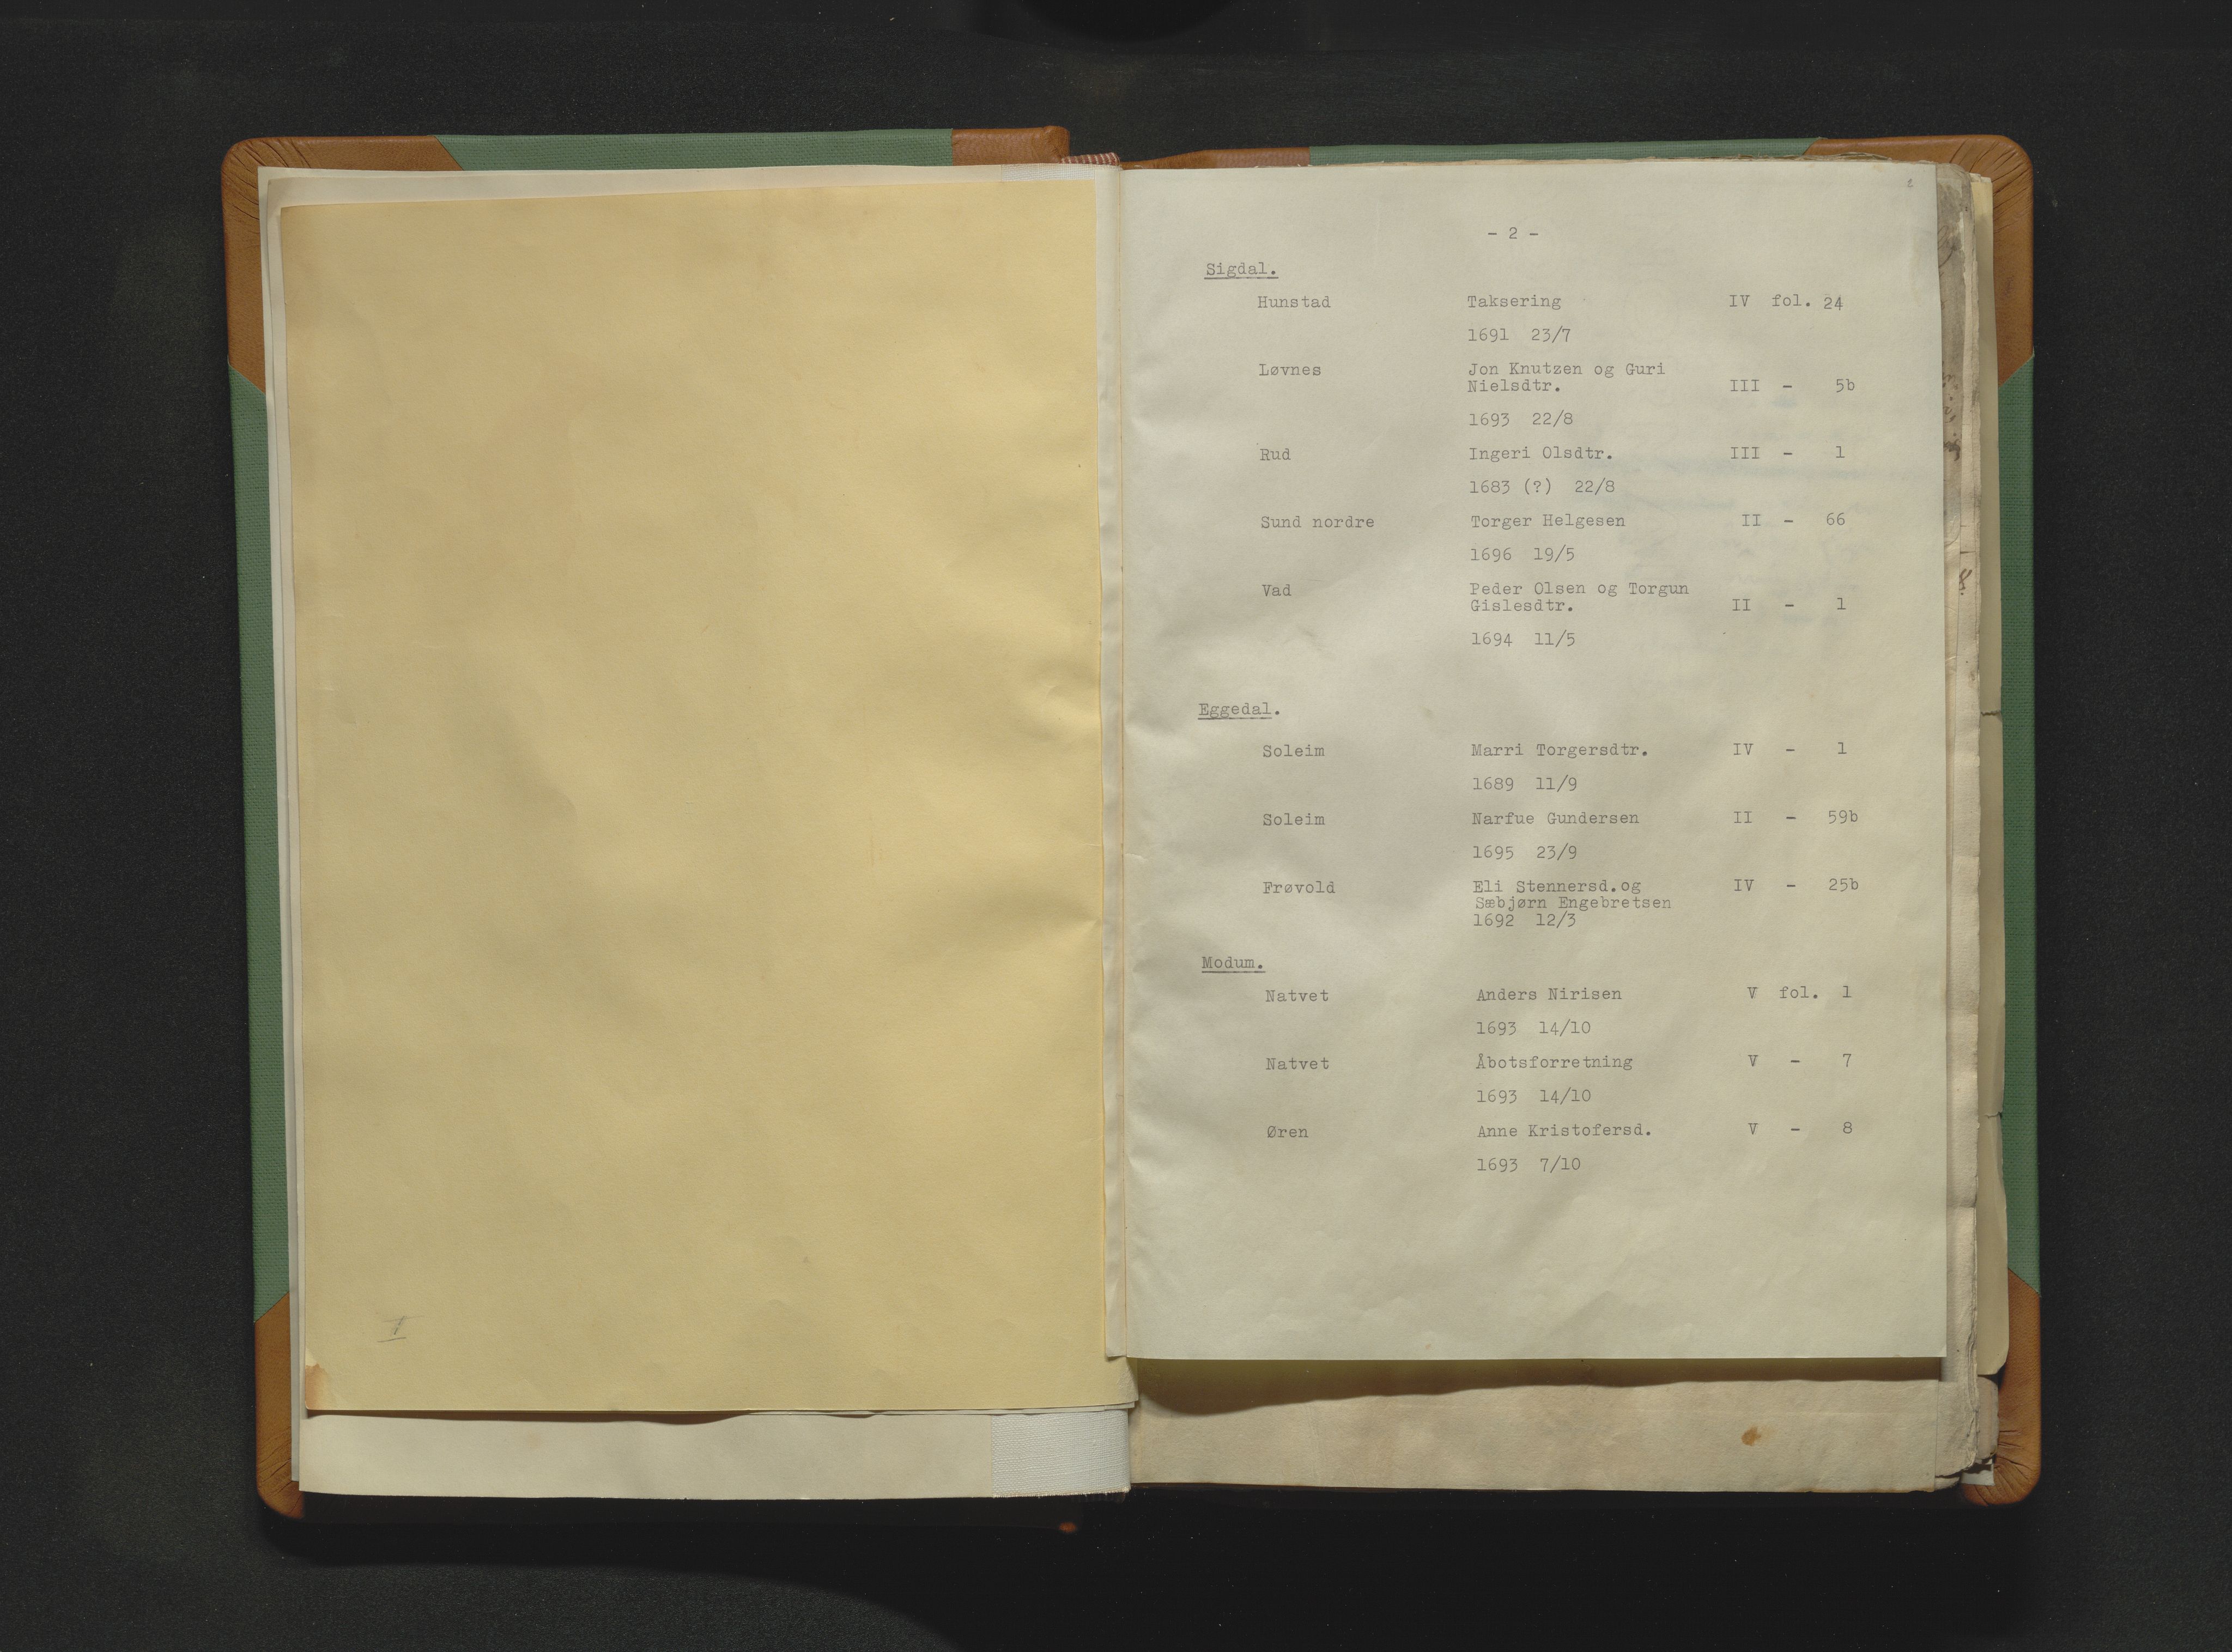 2
- 2 -
Sigdal.
Hunstad Taksering IV fol. 24
1691 23/7
Løvnes Jon Knutzen og Guri
Nielsdtr. III - 5b
1693 22/8
Rud Ingeri Olsdtr. III - 1
1683 (?) 22/8
Sund nordre Torger Helgesen II - 66
1696 19/5
Vad Peder Olsen og Torgun
Gislesdtr. II - 1
1694 11/5
Eggedal.
Soleim Marri Torgersdtr. IV - 1
1689 11/9
Soleim Narfue Gundersen II - 59b
1695 23/9
Frøvold Eli Stennersd.og IV - 25b
Sæbjørn Engebretsen
1692 12/3
Modum.
Natvet Anders Nirisen V fol. 1
1693 14/10
Natvet Åbotsforretning V - 7
1693 14/10
Øren Anne Kristofersd. V - 8
1693 7/10
I